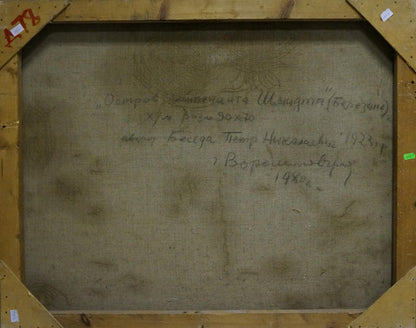 „Остров лейтенанта Шмидта" (Березань)
х/м Разм 90х70
автор Беседа Петр Николаевич 1923 г.р.
г. Ворошиловград
1980г.